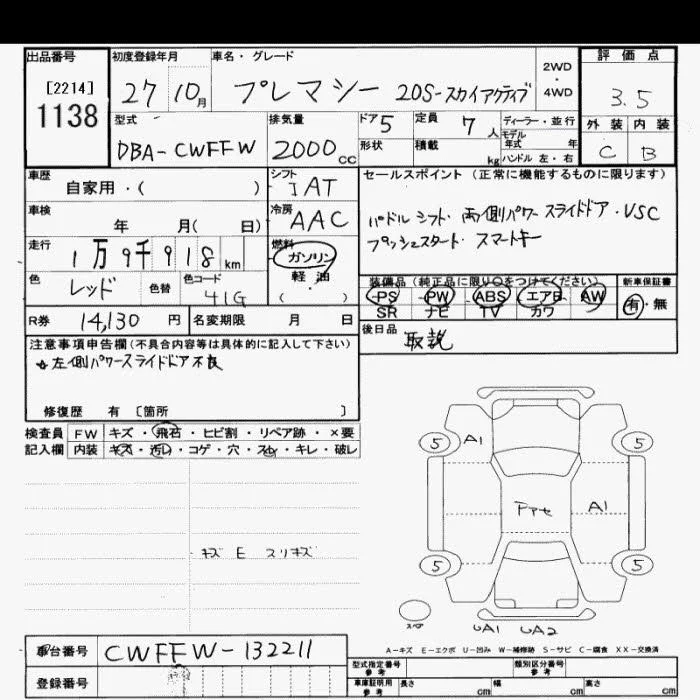 出品番号
[2214]
1138
初度登録年月
27 10月
車名・グレード
プレマシー 20S-スカイアクティブ
2WD
・
4WD
評価点
3.5
外装 内装
C B
型式
DBA-CWFFW
排気量
2000cc
ドア 5
形状
定員 7人
積載 kg
ディーラー・並行
モデル年式 年
ハンドル 左・右
車歴
自家用・( )
シフト
IAT
車検
年 月( 日)
冷房
AAC
走行
1万9千918km
燃料
ガソリン
軽油
( )
色
レッド
色替
色コード
41G
セールスポイント(正常に機能するものに限ります)
パドルシフト・両側パワースライドドア・VSC
プッシュスタート・スマートキー
装備品(純正品に限り○をつけてください)
PS PW ABS エアB AW
SR ナビ TV カワ
新車保証書
有・無
R券 14,130 円
名変期限 月 日
後日品
取説
注意事項申告欄(不具合内容等は具体的に記入して下さい)
☆左側パワースライドドア不良
修復歴 有 [箇所 ]
検査員 FW キズ・飛石・ヒビ割・リペア跡・×要
記入欄 内装 キズ・汚れ・コゲ・穴・スレ・キレ・破レ
キズ E スリキズ
5 A1 5
A1
5 5
スペア
UA1 UA2
A-キズ E-エクボ U-凹み W-補修跡 S-サビ C-腐食 XX-交換済
車台番号 CWFFW-132211
登録番号
型式指定番号
参考
類別区分番号
参考
車庫証明用
参考
長さ cm 幅 cm 高さ cm